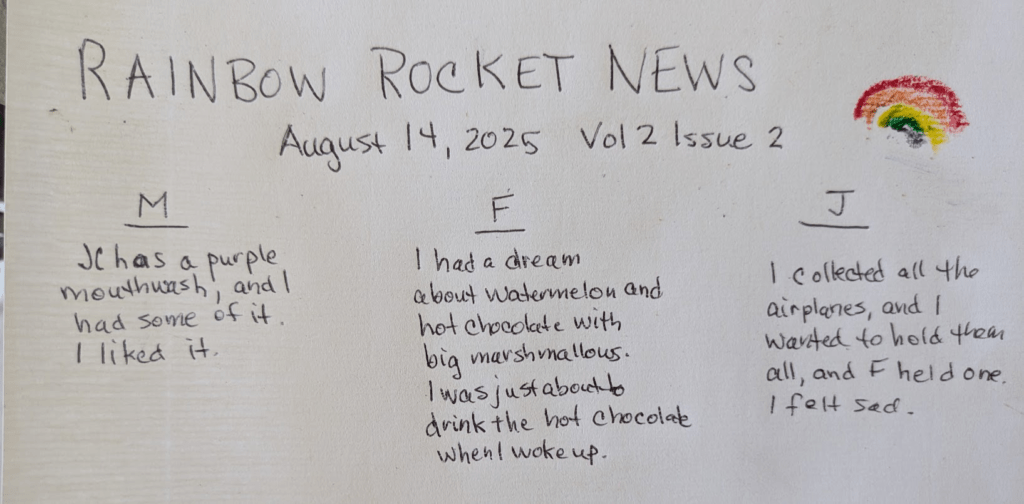 RAINBOW ROCKET NEWS
August 14, 2025 Vol 2 Issue 2
M
JC has a purple
mouthwash, and I
had some of it.
I liked it.
F
I had a dream
about watermelon and
hot chocolate with
big marshmallous.
I was just about to
drink the hot chocolate
when I woke up.
J
I collected all the
airplanes, and I
wanted to hold them
all, and F held one.
I felt sad.